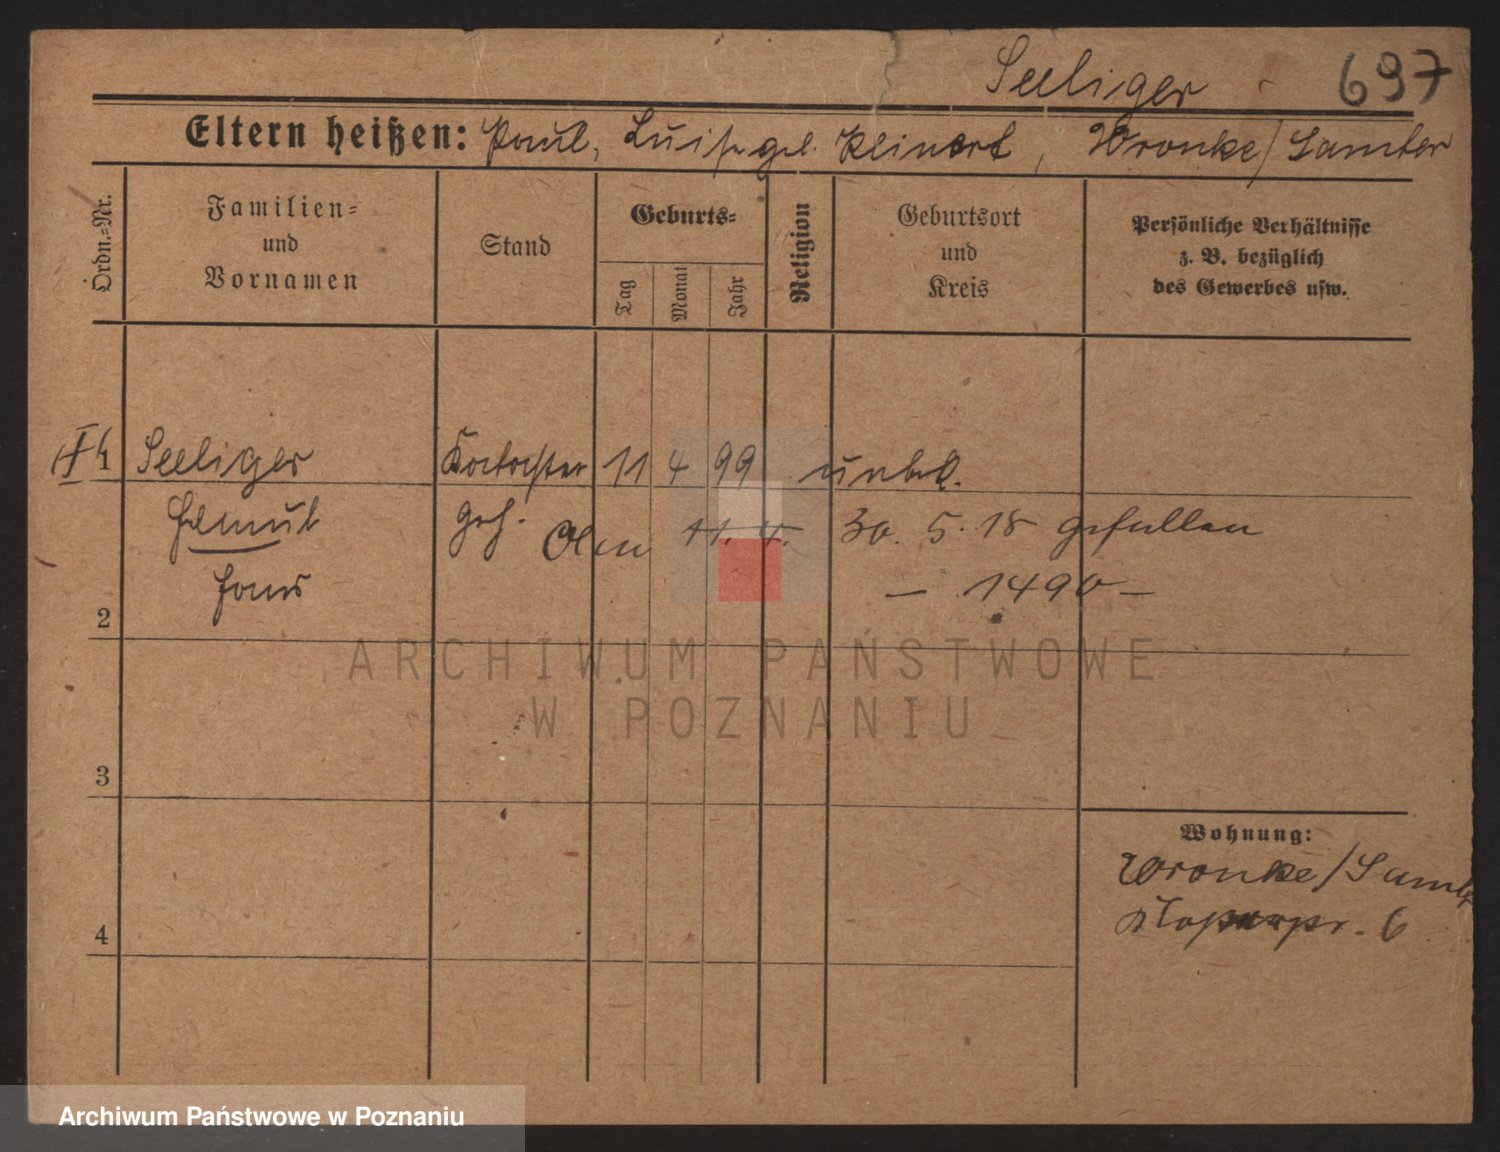 Seeliger 697
Eltern heißen: Paul, Luise geb. Kleinert, Wronke/Samter
Ordn.=Nr.
Familien=
und
Vornamen
Stand
Geburts=
Tag
Monat
Jahr
Religion
Geburtsort
und
Kreis
Persönliche Verhältnisse
z. B. bezüglich
des Gewerbes usw.
1 Seeliger 11 4 99 unbek.
Helmut Am 11. 4. 30. 5. 18 gefallen
Hans — 1490 —
2
ARCHIWUM PAŃSTWOWE
W POZNANIU
3
Wohnung:
Wronke/Samt
4 6
Archiwum Państwowe w Poznaniu